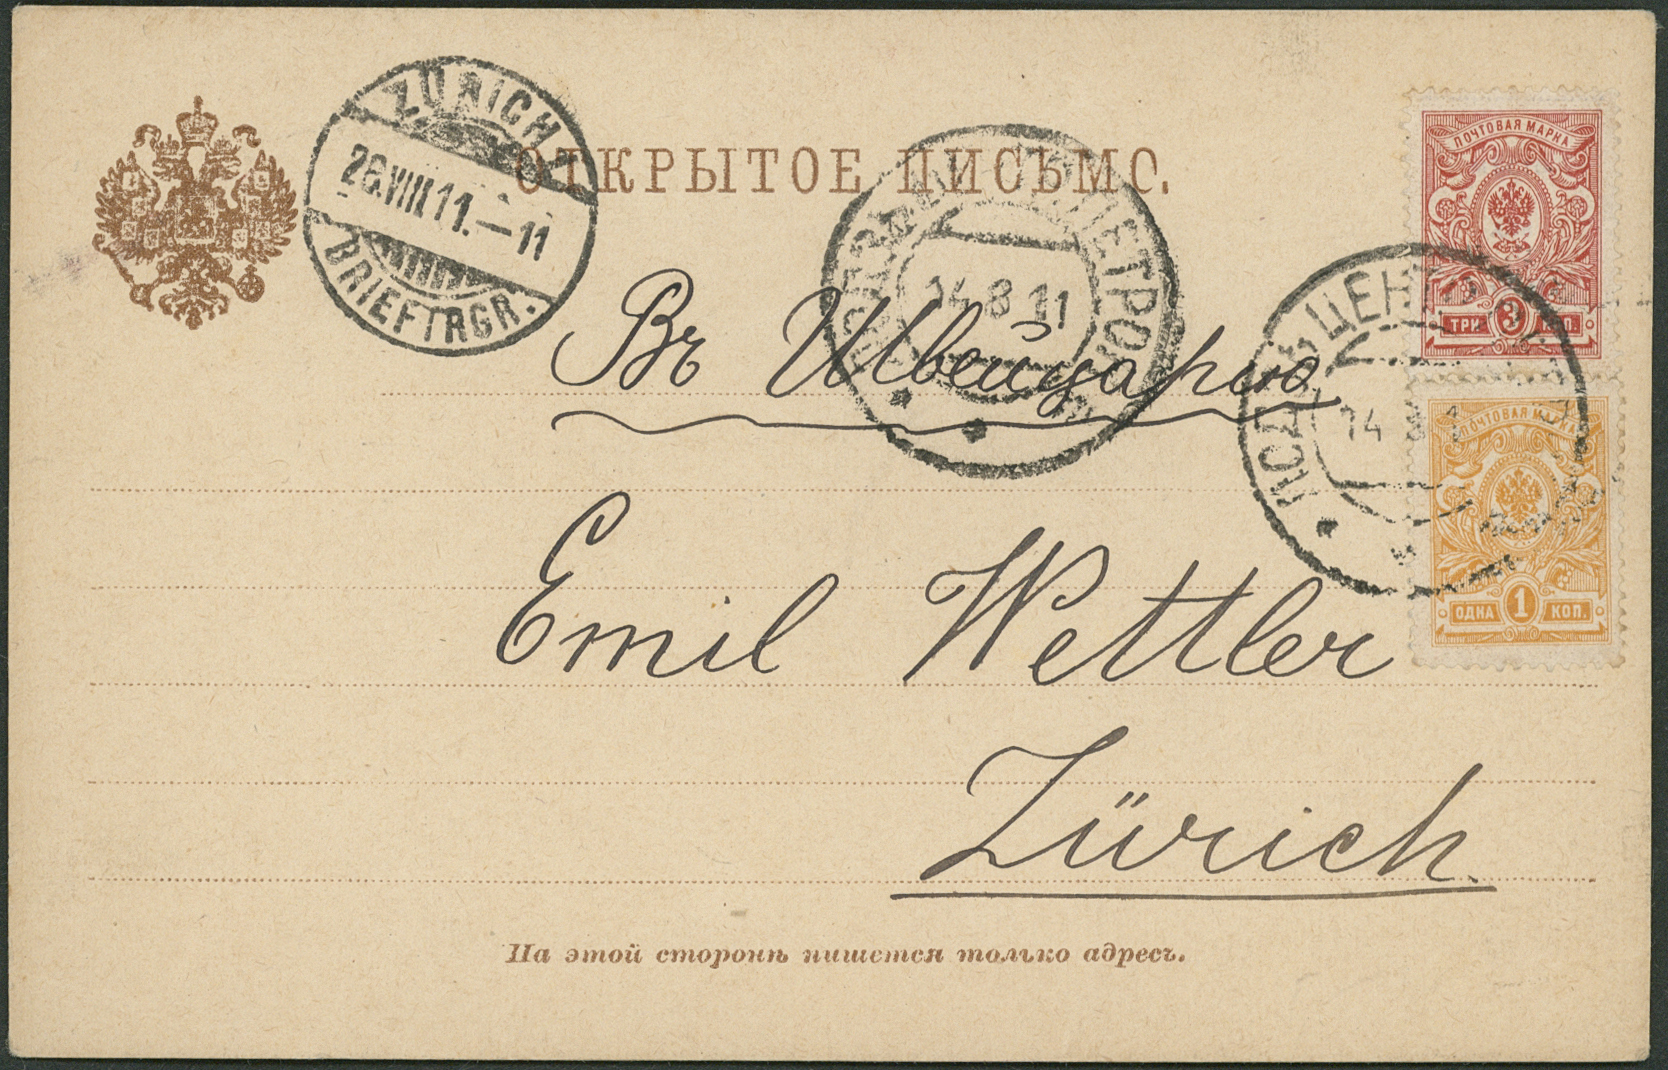 ОТКРЫТОЕ ПИСЬМО.
ZÜRICH
26.VIII.11.—11
BRIEFTRGR.
14 8 11
ПОЧТОВАЯ МАРКА
ТРИ 3 КОП.
14
ПОЧТОВАЯ МАРКА
ОДНА 1 КОП.
Въ Швейцарію
Emil Wettler
Zürich.
На этой сторонѣ пишется только адресъ.